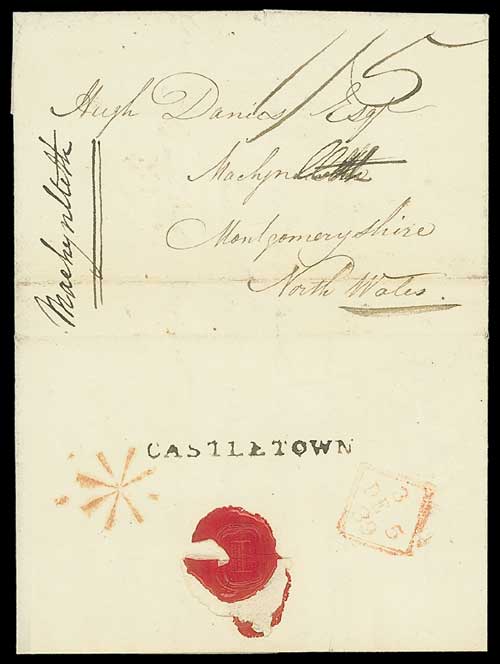 1/5
Hugh Davies Esqr
Machynlleth
Montgomeryshire
North Wales.
Machynlleth
CASTLETOWN